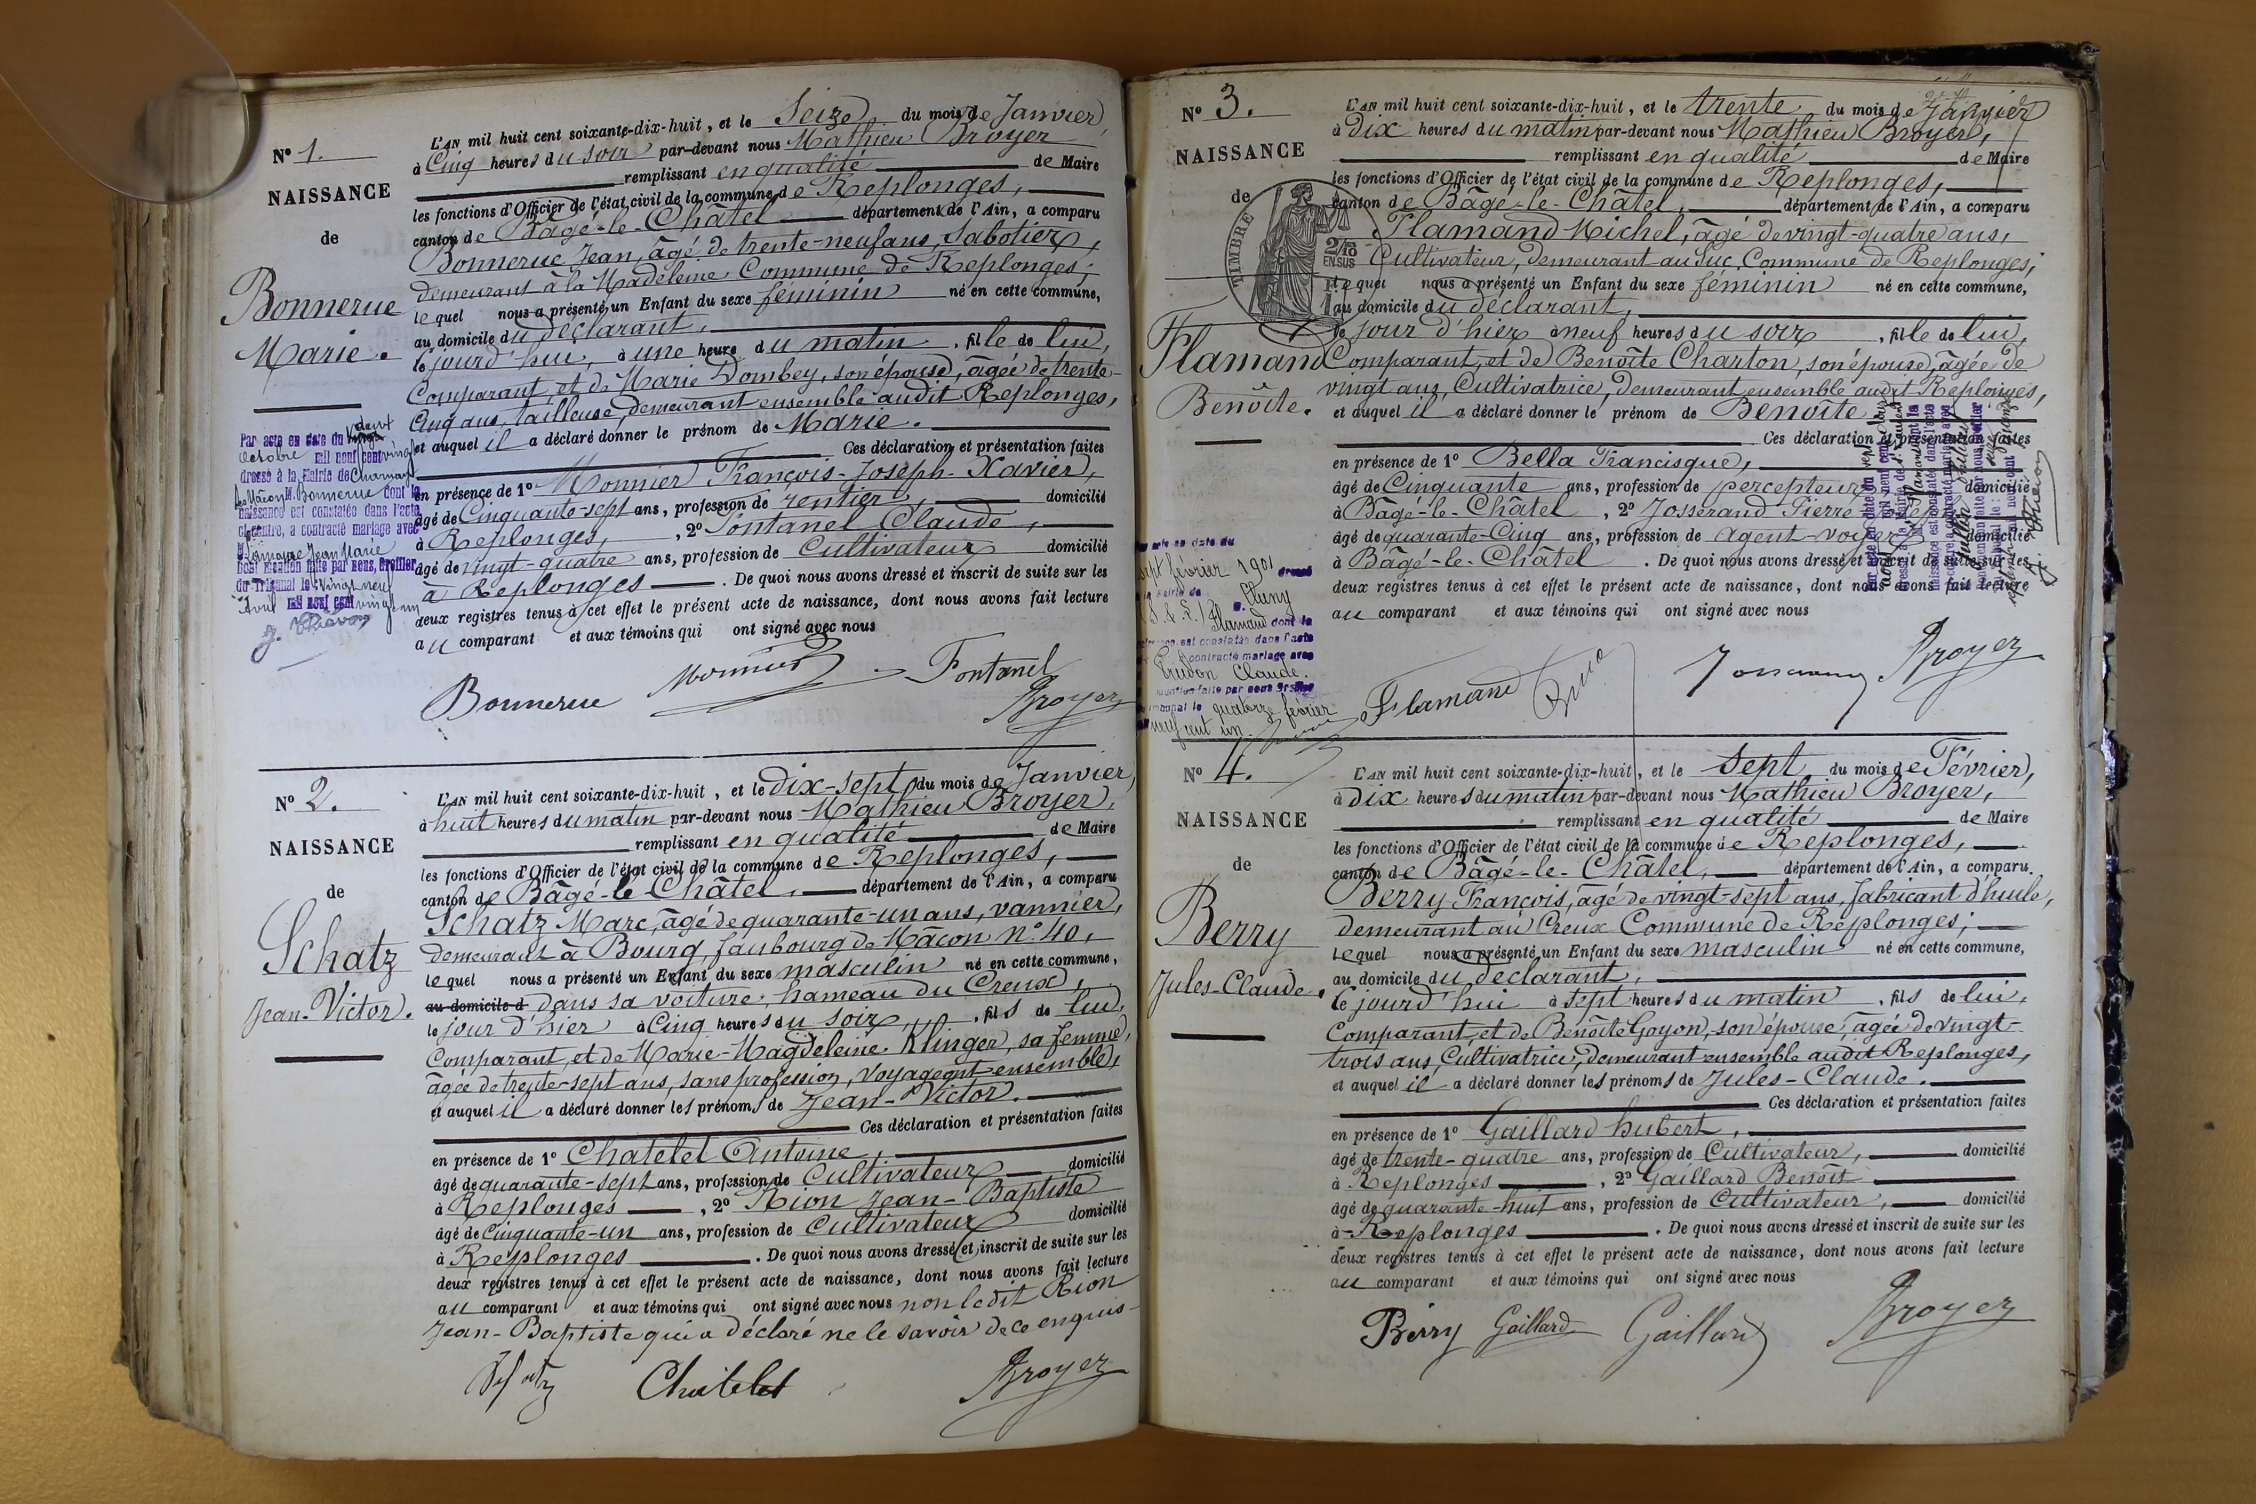 N° 1.
NAISSANCE
de
Bonnerue
Marie.
L'AN mil huit cent soixante-dix-huit, et le Seize du mois de Janvier,
à Cinq heures du soir par-devant nous Mathieu Broyer
remplissant en qualité de Maire
les fonctions d'Officier de l'état civil de la commune de Replonges,
canton de Bâgé-le-Châtel département de l'Ain, a comparu
Bonnerue Jean, âgé de trente-neuf ans, Sabotier,
demeurant à la Madeleine Commune de Replonges;
lequel nous a présenté un Enfant du sexe féminin né en cette commune,
au domicile du déclarant,
le jourd'hui, à une heure du matin, fille de lui,
Comparant, et de Marie Dombey, son épouse, âgée de trente-
Cinq ans, tailleuse, demeurant ensemble audit Replonges,
et auquel il a déclaré donner le prénom de Marie.
Ces déclaration et présentation faites
en présence de 1° Monnier François-Joseph-Xavier,
âgé de Cinquante-sept ans, profession de rentier, domicilié
à Replonges, 2° Fontanel Claude,
âgé de vingt-quatre ans, profession de Cultivateur domicilié
à Replonges. De quoi nous avons dressé et inscrit de suite sur les
deux registres tenus à cet effet le présent acte de naissance, dont nous avons fait lecture
au comparant et aux témoins qui ont signé avec nous
Par acte en date du
octobre mil neuf cent vingt
dressé à la Mairie de Charnay
les Mâcon M. Bonnerue dont la
naissance est constatée dans l'acte
ci-contre, a contracté mariage avec
Jean Marie
Dont mention faite par nous, Greffier
du Tribunal le vingt neuf
Avril mil neuf cent vingt un
Bonnerue Monnier Fontanel
Broyer
N° 2.
NAISSANCE
de
Schatz
Jean-Victor.
L'AN mil huit cent soixante-dix-huit, et le dix-sept du mois de Janvier,
à huit heures du matin par-devant nous Mathieu Broyer,
remplissant en qualité de Maire
les fonctions d'Officier de l'état civil de la commune de Replonges,
canton de Bâgé-le-Châtel, département de l'Ain, a comparu
Schatz Marc, âgé de quarante-un ans, vannier,
demeurant à Bourg, faubourg de Mâcon n° 40,
lequel nous a présenté un Enfant du sexe masculin né en cette commune,
au domicile d dans sa voiture, hameau du Creux,
le jour d'hier à Cinq heures du soir, fils de lui,
Comparant, et de Marie-Magdeleine Klinger, sa femme,
âgée de trente-sept ans, sans profession, voyageant ensemble,
et auquel il a déclaré donner les prénoms de Jean-Victor.
Ces déclaration et présentation faites
en présence de 1° Chatelet Antoine,
âgé de quarante-sept ans, profession de Cultivateur domicilié
à Replonges, 2° Rion Jean-Baptiste
âgé de Cinquante-un ans, profession de Cultivateur domicilié
à Replonges. De quoi nous avons dressé et inscrit de suite sur les
deux registres tenus à cet effet le présent acte de naissance, dont nous avons fait lecture
au comparant et aux témoins qui ont signé avec nous non ledit Rion
Jean-Baptiste qui a déclaré ne le savoir de ce enquis
Schatz Chatelet Broyer
N° 3.
NAISSANCE
de
TIMBRE
2/10
EN SUS
Flamand
Benoîte.
L'AN mil huit cent soixante-dix-huit, et le trente du mois de Janvier
à Dix heures du matin par-devant nous Mathieu Broyer,
remplissant en qualité de Maire
les fonctions d'Officier de l'état civil de la commune de Replonges,
canton de Bâgé-le-Châtel, département de l'Ain, a comparu
Flamand Michel, âgé de vingt-quatre ans,
Cultivateur, demeurant au Suc, Commune de Replonges;
lequel nous a présenté un Enfant du sexe féminin né en cette commune,
au domicile du déclarant,
le jour d'hier à neuf heures du soir, fille de lui,
Comparant, et de Benoîte Charton, son épouse, âgée de
vingt ans, Cultivatrice, demeurant ensemble audit Replonges,
et auquel il a déclaré donner le prénom de Benoîte.
Ces déclaration et présentation faites
en présence de 1° Bella Francisque,
âgé de Cinquante ans, profession de percepteur domicilié
à Bâgé-le-Châtel, 2° Josserand Pierre
âgé de quarante-Cinq ans, profession de agent-voyer domicilié
à Bâgé-le-Châtel. De quoi nous avons dressé et inscrit de suite sur les
deux registres tenus à cet effet le présent acte de naissance, dont nous avons fait lecture
au comparant et aux témoins qui ont signé avec nous
acte en date du
sept février 1901 dressé
Mairie de Cluny
(S. & L.) Flamand dont la
naissance est constatée dans l'acte
contracté mariage avec
Prudon Claude.
mention faite par nous Greffier
Tribunal le quatorze février
neuf cent un.
Flamand Josserand Broyer
N° 4.
NAISSANCE
de
Berry
Jules-Claude.
L'AN mil huit cent soixante-dix-huit, et le Sept du mois de Février,
à dix heures du matin par-devant nous Mathieu Broyer,
remplissant en qualité de Maire
les fonctions d'Officier de l'état civil de la commune de Replonges,
canton de Bâgé-le-Châtel, département de l'Ain, a comparu
Berry François, âgé de vingt-sept ans, fabricant d'huile,
demeurant au Creux Commune de Replonges;
lequel nous a présenté un Enfant du sexe masculin né en cette commune,
au domicile du déclarant,
le jourd'hui à sept heures du matin, fils de lui,
Comparant, et de Benoîte Goyon, son épouse, âgée de vingt-
trois ans, Cultivatrice, demeurant ensemble audit Replonges,
et auquel il a déclaré donner les prénoms de Jules-Claude.
Ces déclaration et présentation faites
en présence de 1° Gaillard hubert,
âgé de trente-quatre ans, profession de Cultivateur, domicilié
à Replonges, 2° Gaillard Benoît
âgé de quarante-huit ans, profession de Cultivateur, domicilié
à Replonges. De quoi nous avons dressé et inscrit de suite sur les
deux registres tenus à cet effet le présent acte de naissance, dont nous avons fait lecture
au comparant et aux témoins qui ont signé avec nous
Berry Gaillard Gaillard Broyer